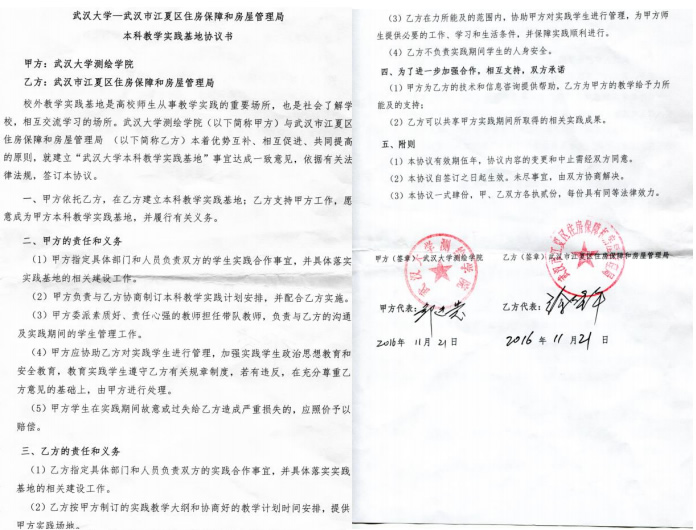 武汉大学—武汉市江夏区住房保障和房屋管理局
本科教学实践基地协议书
甲方：武汉大学测绘学院
乙方：武汉市江夏区住房保障和房屋管理局
校外教学实践基地是高校师生从事教学实践的重要场所，也是社会了解学
校，相互交流学习的场所。武汉大学测绘学院（以下简称甲方）与武汉市江夏区
住房保障和房屋管理局 （以下简称乙方）本着优势互补、相互促进、共同提高
的原则，就建立“武汉大学本科教学实践基地”事宜达成一致意见，依据有关法
律法规，签订本协议。
一、甲方依托乙方，在乙方建立本科教学实践基地；乙方支持甲方工作，愿
意成为甲方本科教学实践基地，并履行有关义务。
二、甲方的责任和义务
（1）甲方指定具体部门和人员负责双方的学生实践合作事宜，并具体落实
实践基地的相关建设工作。
（2）甲方负责与乙方协商制订本科教学实践计划安排，并配合乙方实施。
（3）甲方委派素质好、责任心强的教师担任带队教师，负责与乙方的沟通
及实践期间的学生管理工作。
（4）甲方应协助乙方对实践学生进行管理，加强实践学生政治思想教育和
安全教育，教育实践学生遵守乙方有关规章制度，若有违反，在充分尊重乙
方意见的基础上，由甲方进行处理。
（5）甲方学生在实践期间故意或过失给乙方造成严重损失的，应照价予以
赔偿。
三、乙方的责任和义务
（1）乙方指定具体部门和人员负责双方的实践合作事宜，并具体落实实践
基地的相关建设工作。
（2）乙方按甲方制订的实践教学大纲和协商好的教学计划时间安排，提供
甲方实践场地。
（3）乙方在力所能及的范围内，协助甲方对实践学生进行管理，为甲方师
生提供必要的工作、学习和生活条件，并保障实践顺利进行。
（4）乙方不负责实践期间学生的人身安全。
四、为了进一步加强合作，相互支持，双方承诺
（1）甲方为乙方的技术和信息咨询提供帮助，乙方为甲方的教学给予力所
能及的支持；
（2）乙方可以共享甲方实践期间所取得的相关实践成果。
五、附则
（1）本协议有效期伍年，协议内容的变更和中止需经双方同意。
（2）本协议自签订之日起生效。未尽事宜，由双方协商解决。
（3）本协议一式肆份，甲、乙双方各执贰份，每份具有同等法律效力。
甲方（签章）：武汉大学测绘学院
乙方（签章）武汉市江夏区住房保障和房屋管理局
武汉大学测绘学院
甲方代表：
乙方代表：
2016年 11月 21日
2016 年 11 月 21 日